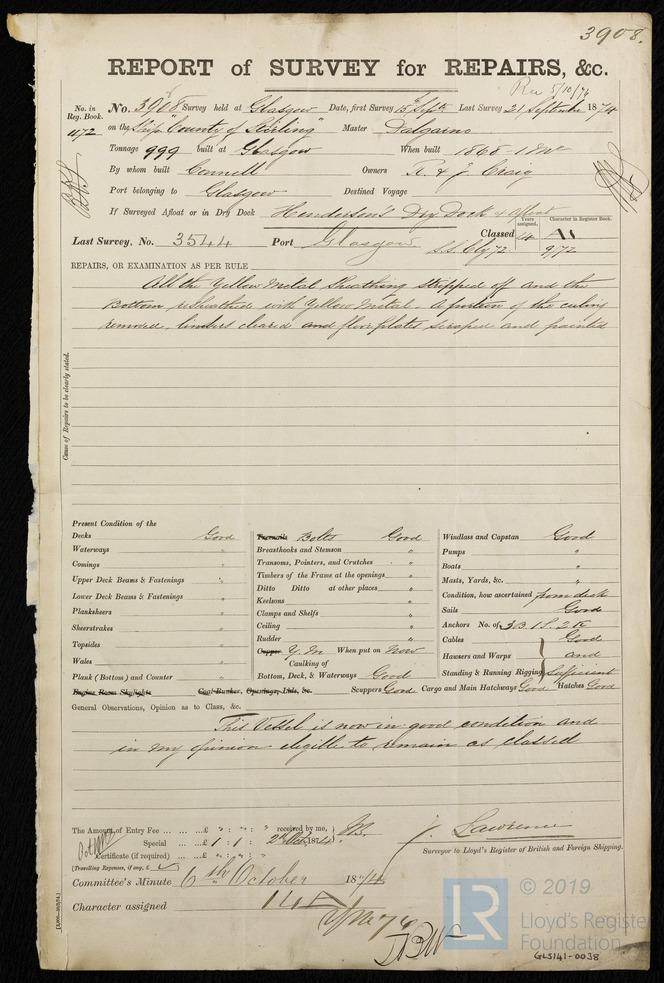 3908.
REPORT of SURVEY for REPAIRS, &c.
Rec 5/10/74
No. in Reg. Book. 1172
No. 3908 Survey held at Glasgow Date, first Survey 15th Septr Last Survey 21 September 1874
on the Ship "County of Stirling" Master Dalgarno
Tonnage 999 built at Glasgow When built 1868 - 11mo
By whom built Connell Owners R. & J. Craig
Port belonging to Glasgow Destined Voyage
If Surveyed Afloat or in Dry Dock Henderson's Dry Dock & afloat
Years assigned. Character in Register Book.
Last Survey, No. 3544 Port Glasgow Classed 14 A1
S.S. Cly 72 9/72
REPAIRS, OR EXAMINATION AS PER RULE
All the Yellow Metal Sheathing stripped off and the
Bottom resheathed with Yellow Metal. A portion of the ceiling
removed, limbers cleared and floorplates scraped and painted
Cause of Repairs to be clearly stated.
Present Condition of the
Decks Good
Waterways "
Comings "
Upper Deck Beams & Fastenings "
Lower Deck Beams & Fastenings "
Planksheers "
Sheerstrakes "
Topsides "
Wales "
Plank (Bottom) and Counter "
Engine Room Skylights Coal Bunker, Openings, Lids, &c.
Treenails Bolts Good
Breasthooks and Stemson "
Transoms, Pointers, and Crutches "
Timbers of the Frame at the openings "
Ditto Ditto at other places "
Keelsons "
Clamps and Shelfs "
Ceiling "
Rudder "
Copper Y.M When put on Now
Caulking of
Bottom, Deck, & Waterways Good
Scuppers Good Cargo and Main Hatchways Good Hatches Good
Windlass and Capstan Good
Pumps "
Boats "
Masts, Yards, &c. "
Condition, how ascertained from deck
Sails Good
Anchors No. of 3B. 1S. 2K
Cables Good
Hawsers and Warps and
Standing & Running Rigging Sufficient
General Observations, Opinion as to Class, &c.
This Vessel is now in good condition and
in my opinion eligible to remain as classed
The Amount of Entry Fee £ " : " : " received by me,
Special £ 1 : 1 : 2nd Oct 1874
Certificate (if required)
(Travelling Expenses, if any, £
J. Lawrence
Surveyor to Lloyd's Register of British and Foreign Shipping.
Committee's Minute 6th October 1874
Character assigned 14 A1
LR © 2019
Lloyd's Register
Foundation
GLS141-0038